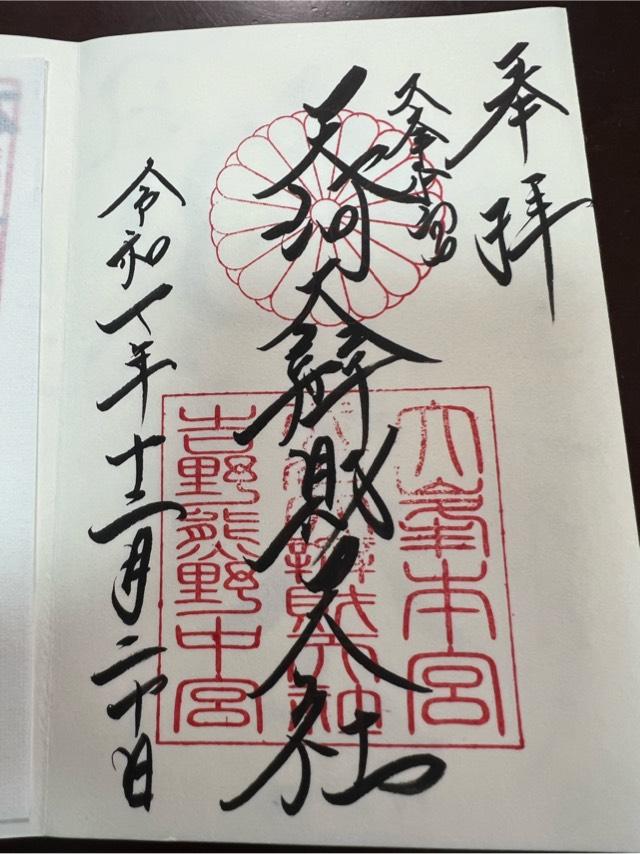 奉拝
天河大辨財天社
令和 年十二月二十日
大峯本宮
天河大辨財天社
吉野熊野中宮